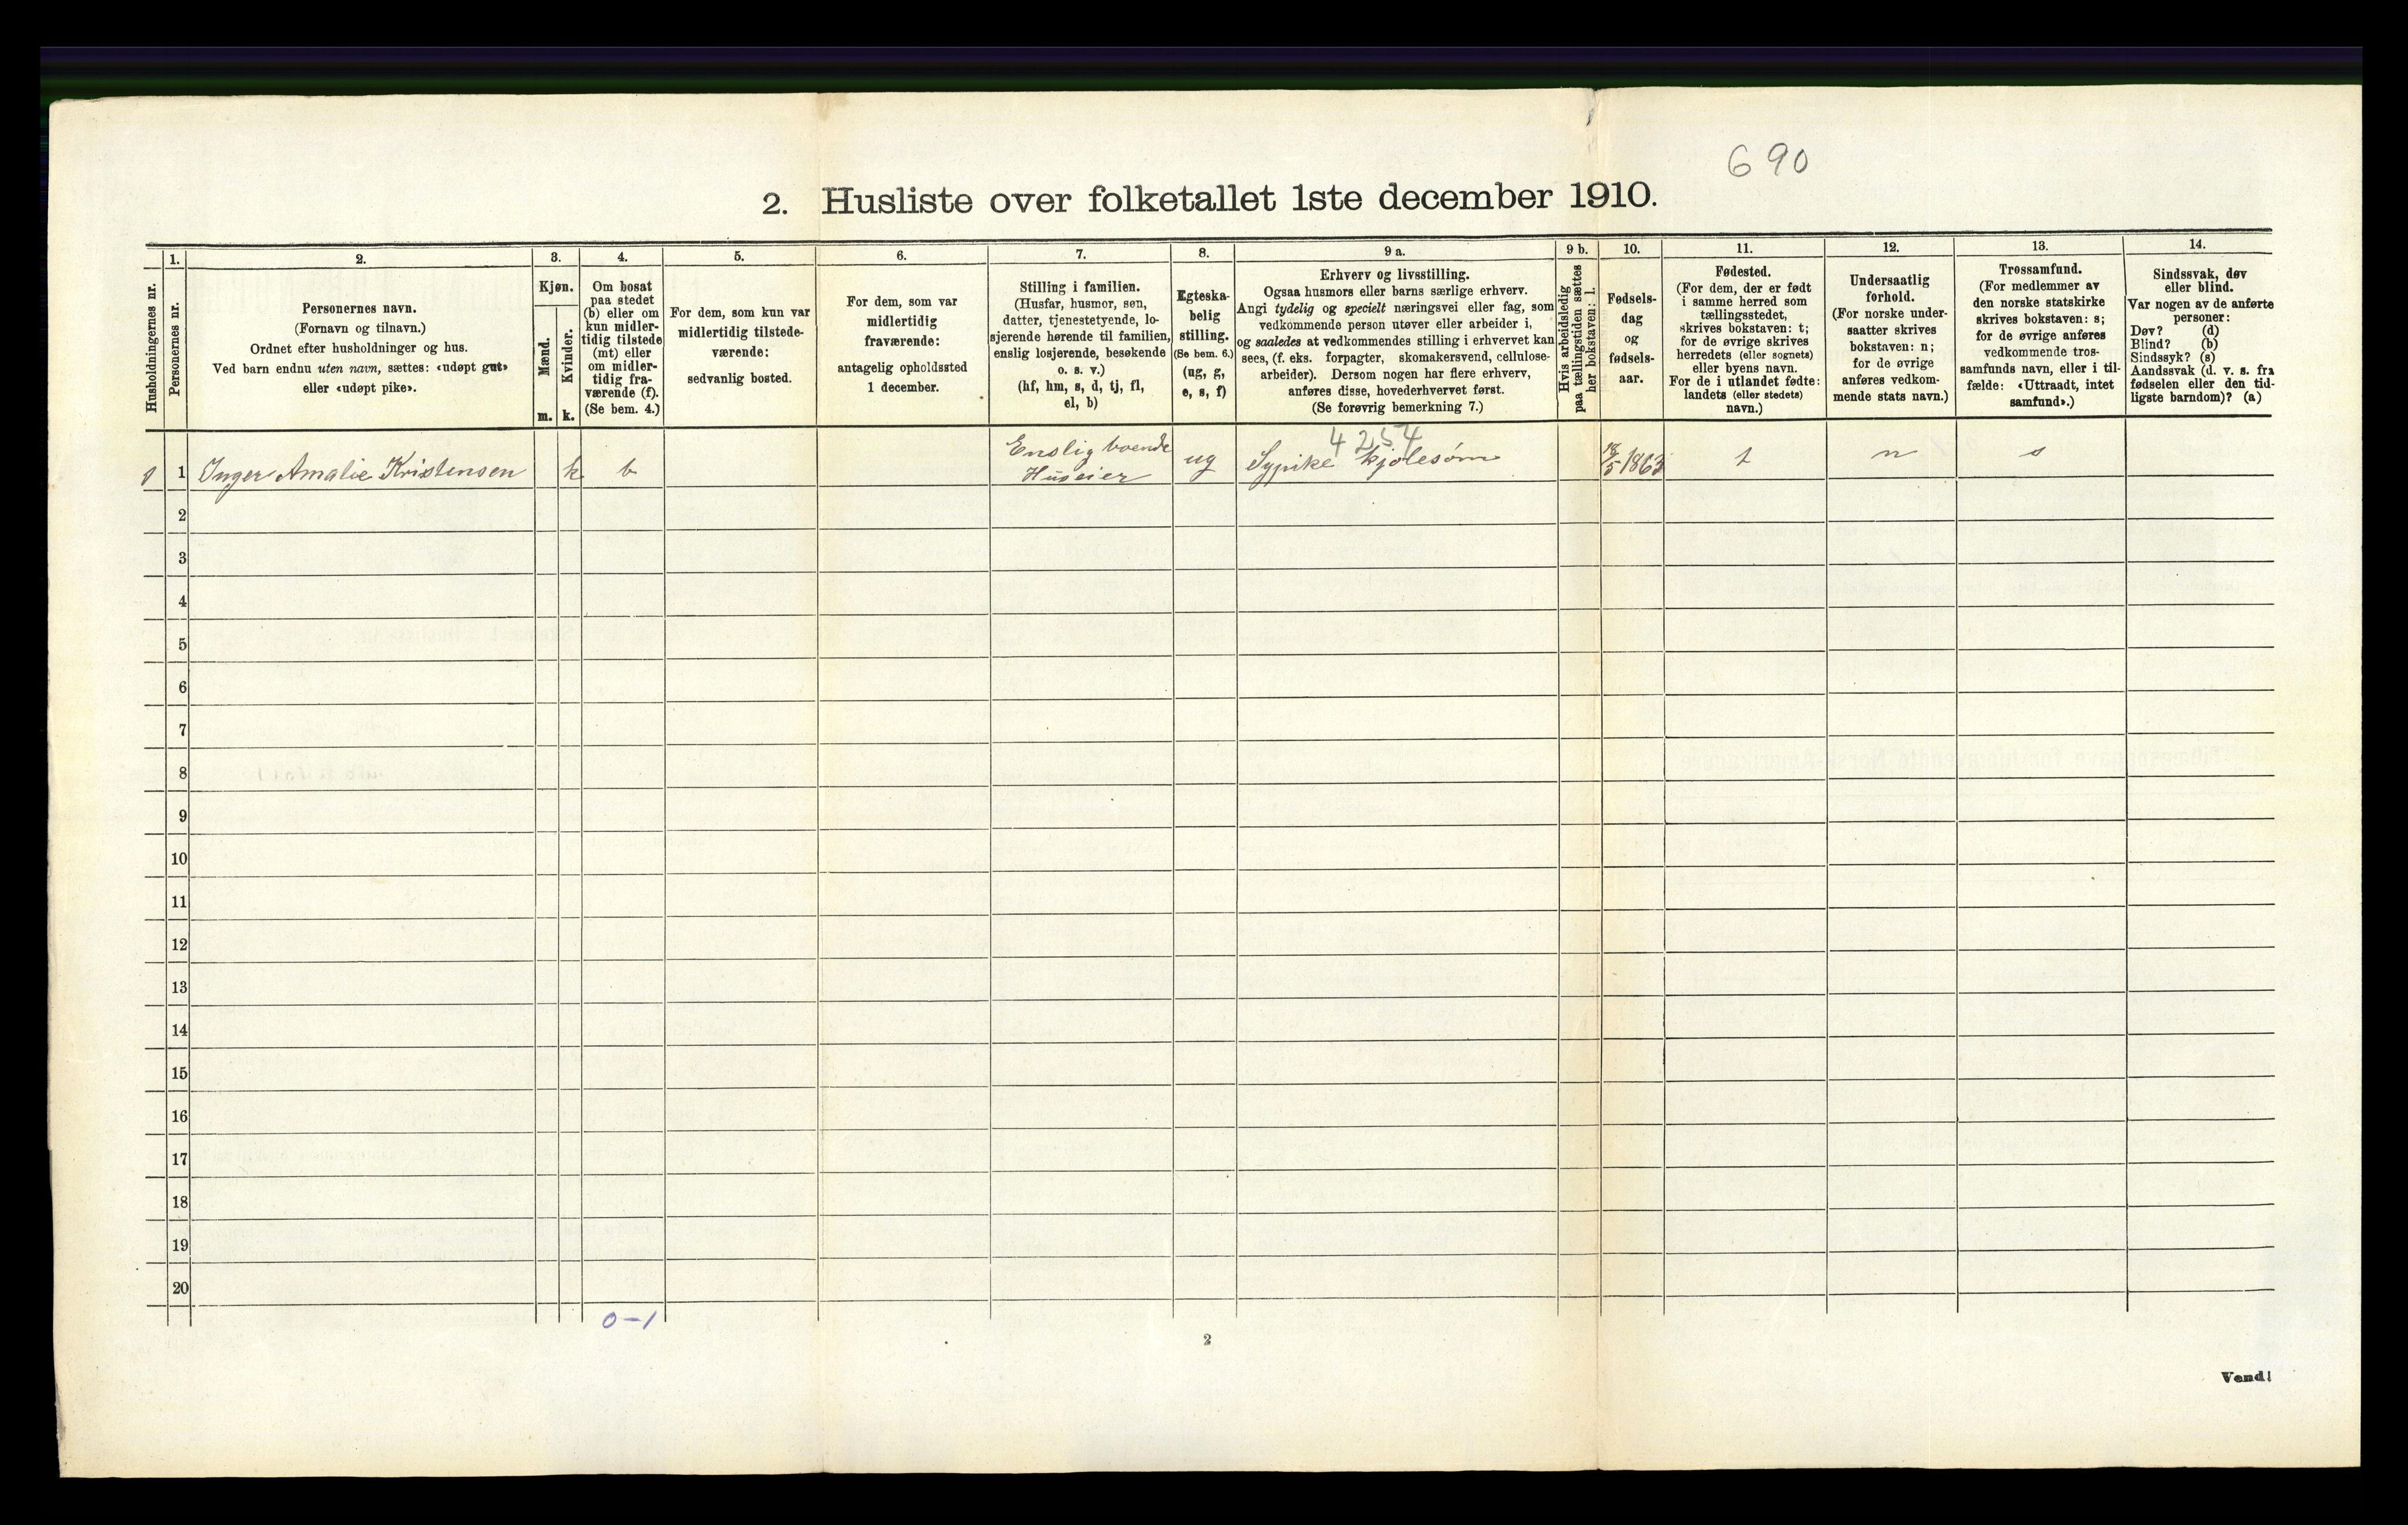 690
2. Husliste over folketallet 1ste december 1910.
Husholdningernes nr.
1.
Personernes nr.
2.
Personernes navn.
(Fornavn og tilnavn.)
Ordnet efter husholdninger og hus.
Ved barn endnu uten navn, sættes: «udøpt gut»
eller «udøpt pike».
3.
Kjøn.
Mænd.
m.
Kvinder.
k.
4.
Om bosat
paa stedet
(b) eller om
kun midler-
tidig tilstede
(mt) eller
om midler-
tidig fra-
værende (f).
(Se bem. 4.)
5.
For dem, som kun var
midlertidig tilstede-
værende:
sedvanlig bosted.
6.
For dem, som var
midlertidig
fraværende:
antagelig opholdssted
1 december.
7.
Stilling i familien.
(Husfar, husmor, søn,
datter, tjenestetyende, lo-
sjerende hørende til familien,
enslig losjerende, besøkende
o. s. v.)
(hf, hm, s, d, tj, fl,
el, b)
8.
Egteska-
belig
stilling.
(Se bem. 6.)
(ug, g,
e, s, f)
9 a.
Erhverv og livsstilling.
Ogsaa husmors eller barns særlige erhverv.
Angi tydelig og specielt næringsvei eller fag, som
vedkommende person utøver eller arbeider i,
og saaledes at vedkommendes stilling i erhvervet kan
sees, (f. eks. forpagter, skomakersvend, cellulose-
arbeider). Dersom nogen har flere erhverv,
anføres disse, hovederhvervet først.
(Se forøvrig bemerkning 7.)
9 b.
Hvis arbeidsledig
paa tællingstiden sættes
her bokstaven: l.
10.
Fødsels-
dag
og
fødsels-
aar.
11.
Fødested.
(For dem, der er født
i samme herred som
tællingsstedet,
skrives bokstaven: t;
for de øvrige skrives
herredets (eller sognets)
eller byens navn.
For de i utlandet fødte:
landets (eller stedets)
navn.)
12.
Undersaatlig
forhold.
(For norske under-
saatter skrives
bokstaven: n;
for de øvrige
anføres vedkom-
mende stats navn.)
13.
Trossamfund.
(For medlemmer av
den norske statskirke
skrives bokstaven: s;
for de øvrige anføres
vedkommende tros-
samfunds navn, eller i til-
fælde: «Uttraadt, intet
samfund».)
14.
Sindssvak, døv
eller blind.
Var nogen av de anførte
personer:
Døv? (d)
Blind? (b)
Sindssyk? (s)
Aandssvak (d. v. s. fra
fødselen eller den tid-
ligste barndom)? (a)
4254
1 1 Inger Amalie Kristensen k b Enslig boende
Huseier ug Sypike kjolesøm 5 1863 t n s
2
3
4
5
6
7
8
9
10
11
12
13
14
15
16
17
18
19
20
0-1
2
Vend!